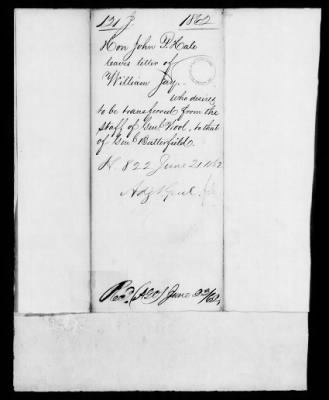 121 J. 1862
Hon John P. Hale
leaves letter of
William Jay.
who desires
to be transferred from the
staff of Genl Wool, to that
of Genl Butterfield
H 822 June 21. 1862
Adjt Genl.
Recd (AGO) June 23/62